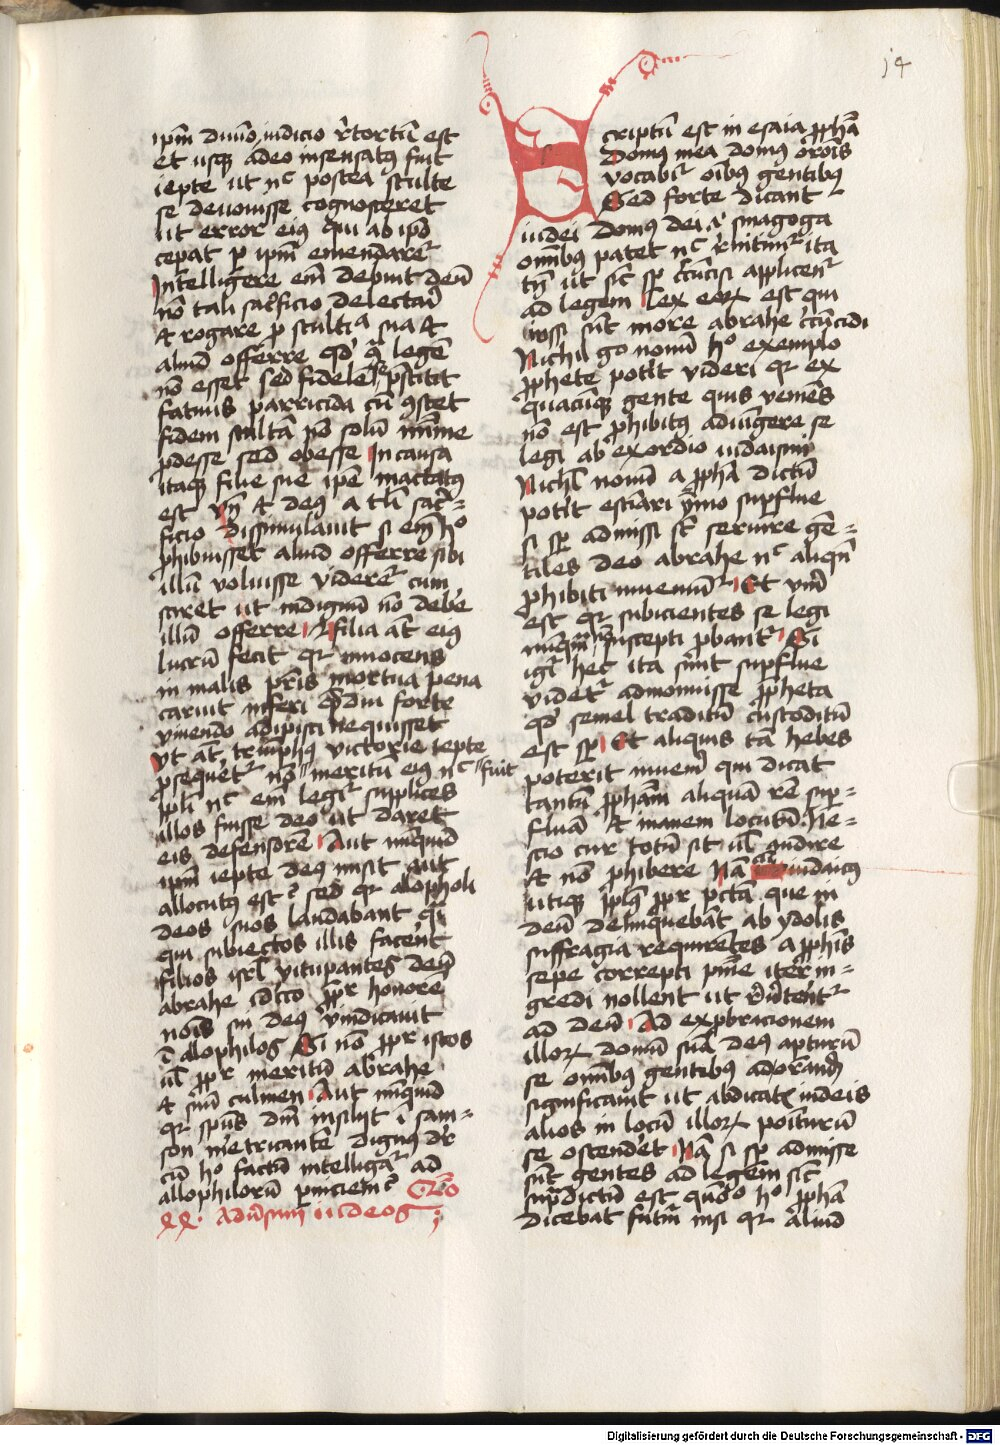 14
ipm̄ diuīo iudicio r̄tortū est
et usq; adeo insensatꝯ fuit
iepte ut nc postea stulte
se deuouisse cognosceret
ut error eiꝯ qui ab ipō
cepat p ipm̄ emendaret᷑
Intelligere em̄ debuit deū
nō tali sac̄ficio delectari
et rogare p stultia sua et
aliud offerre qd' 9ᵃ legē
nō esset sed fidelē se p̄stitit
fatuus parricida cū 9stet
fidem stultā nō solū mīme
pdesse sed obesse In causa
itaq; filie sue ipē mactatꝯ
est Vn̄ et deꝯ a tli sac̄i=
ficio dissimulauit si em̄ hº
phibuisset aliud offerre sibi
illū voluisse videret᷑ cum
sciret ut indignū nō debe'
illū offerre filia at̄ eiꝯ
lucrū fecit qr innocens
in malis pr̄is mortua pena
caruit inferi qdiu forte
viuendo adipisci nequisset
Vt at̄ triūphꝯ victorie iepte
psequet᷑ nō meritū eiꝯ nc fuit
ppli nc em̄ legit᷑ supplices
illos fuisse deo ut daret
eis defensorē Aut nūquid
ipm̄ iepte deꝯ misit aut
allocutꝯ est? sed qr allopholi
deos suos laudabant qᵃ
qui subiectos illis facēnt
filios isrl' vitupantes deū
abrahe idcīco ppr honore
nois sui deꝯ vindicauit
ī allophilos Si nō ppr istos
ul' ppr meritū abrahe
et siuū culmen Aut nūquid
qr spūs dm̄ insiluit ī sam=
son metricantē dignꝯ dr̄
cū hº factū intelligat᷑ ad
allophilorū pniciem? Q̄o
xx. adūsum iudeos
Scriptū est in esaia pphā
Domꝯ mea domꝯ oroīs
vocabit᷑ oībꝯ gentibꝯ
Sed forte dicant
iudei domꝯ dei .i. sinagoga
omībꝯ patet nc r̄nitimt᷑ ita
tn̄ ut sic̄ sp cīcūcisi applicent᷑
ad legem lex eoꝝ est qui
ipsi sūt more abrahe cīcūcidi
Nichil go nouū hº exemplo
pphete potit videri qr ex
quacūq; gente quis veniēs
nō est phibitꝯ adiūgere se
legi ab exordio iudaismi
Nichil nouū a pphā dictū
potit estīari ymo supflue
si sp admissi st̄ seruire gē=
tiles deo abrahe nc aliqn̄
phibiti inueniūt᷑ Et vm̄
est qr subicientes se legi
nūqm̄ nō suscepti pbant᷑ Si
igit᷑ hec ita sunt supflue
videt᷑ admonuisse ppheta
qd' semel traditū custoditū
est sp Et aliquis tā hebes
poterit inueni' qui dicat
tantū pphām aliquā rē sup=
fluā et inanem locutū Ne=
scio cur totū sit ul' audire
et nō phibere Nā iudaicꝯ
utiq; pplꝯ ppr pctā que in
deū delinquebāt ab ydolis
suffragia requirētes a pphis
sepe correpti pene iter in=
gredi nollent ut reūtent᷑
ad deū Ad expbracionem
illoꝝ domū suā deꝯ apturū
se omībꝯ gentibꝯ adorandi
significauit ut abdicatꝭ iudeis
alios in locū illoꝝ poīturū
se ostendet Nā si sp admisse
sūt gentes ad legem sic̄
sup̄dictū est quo hº pphā
dicebat futū nisi qr aliud
Digitalisierung gefördert durch die Deutsche Forschungsgemeinschaft - DFG